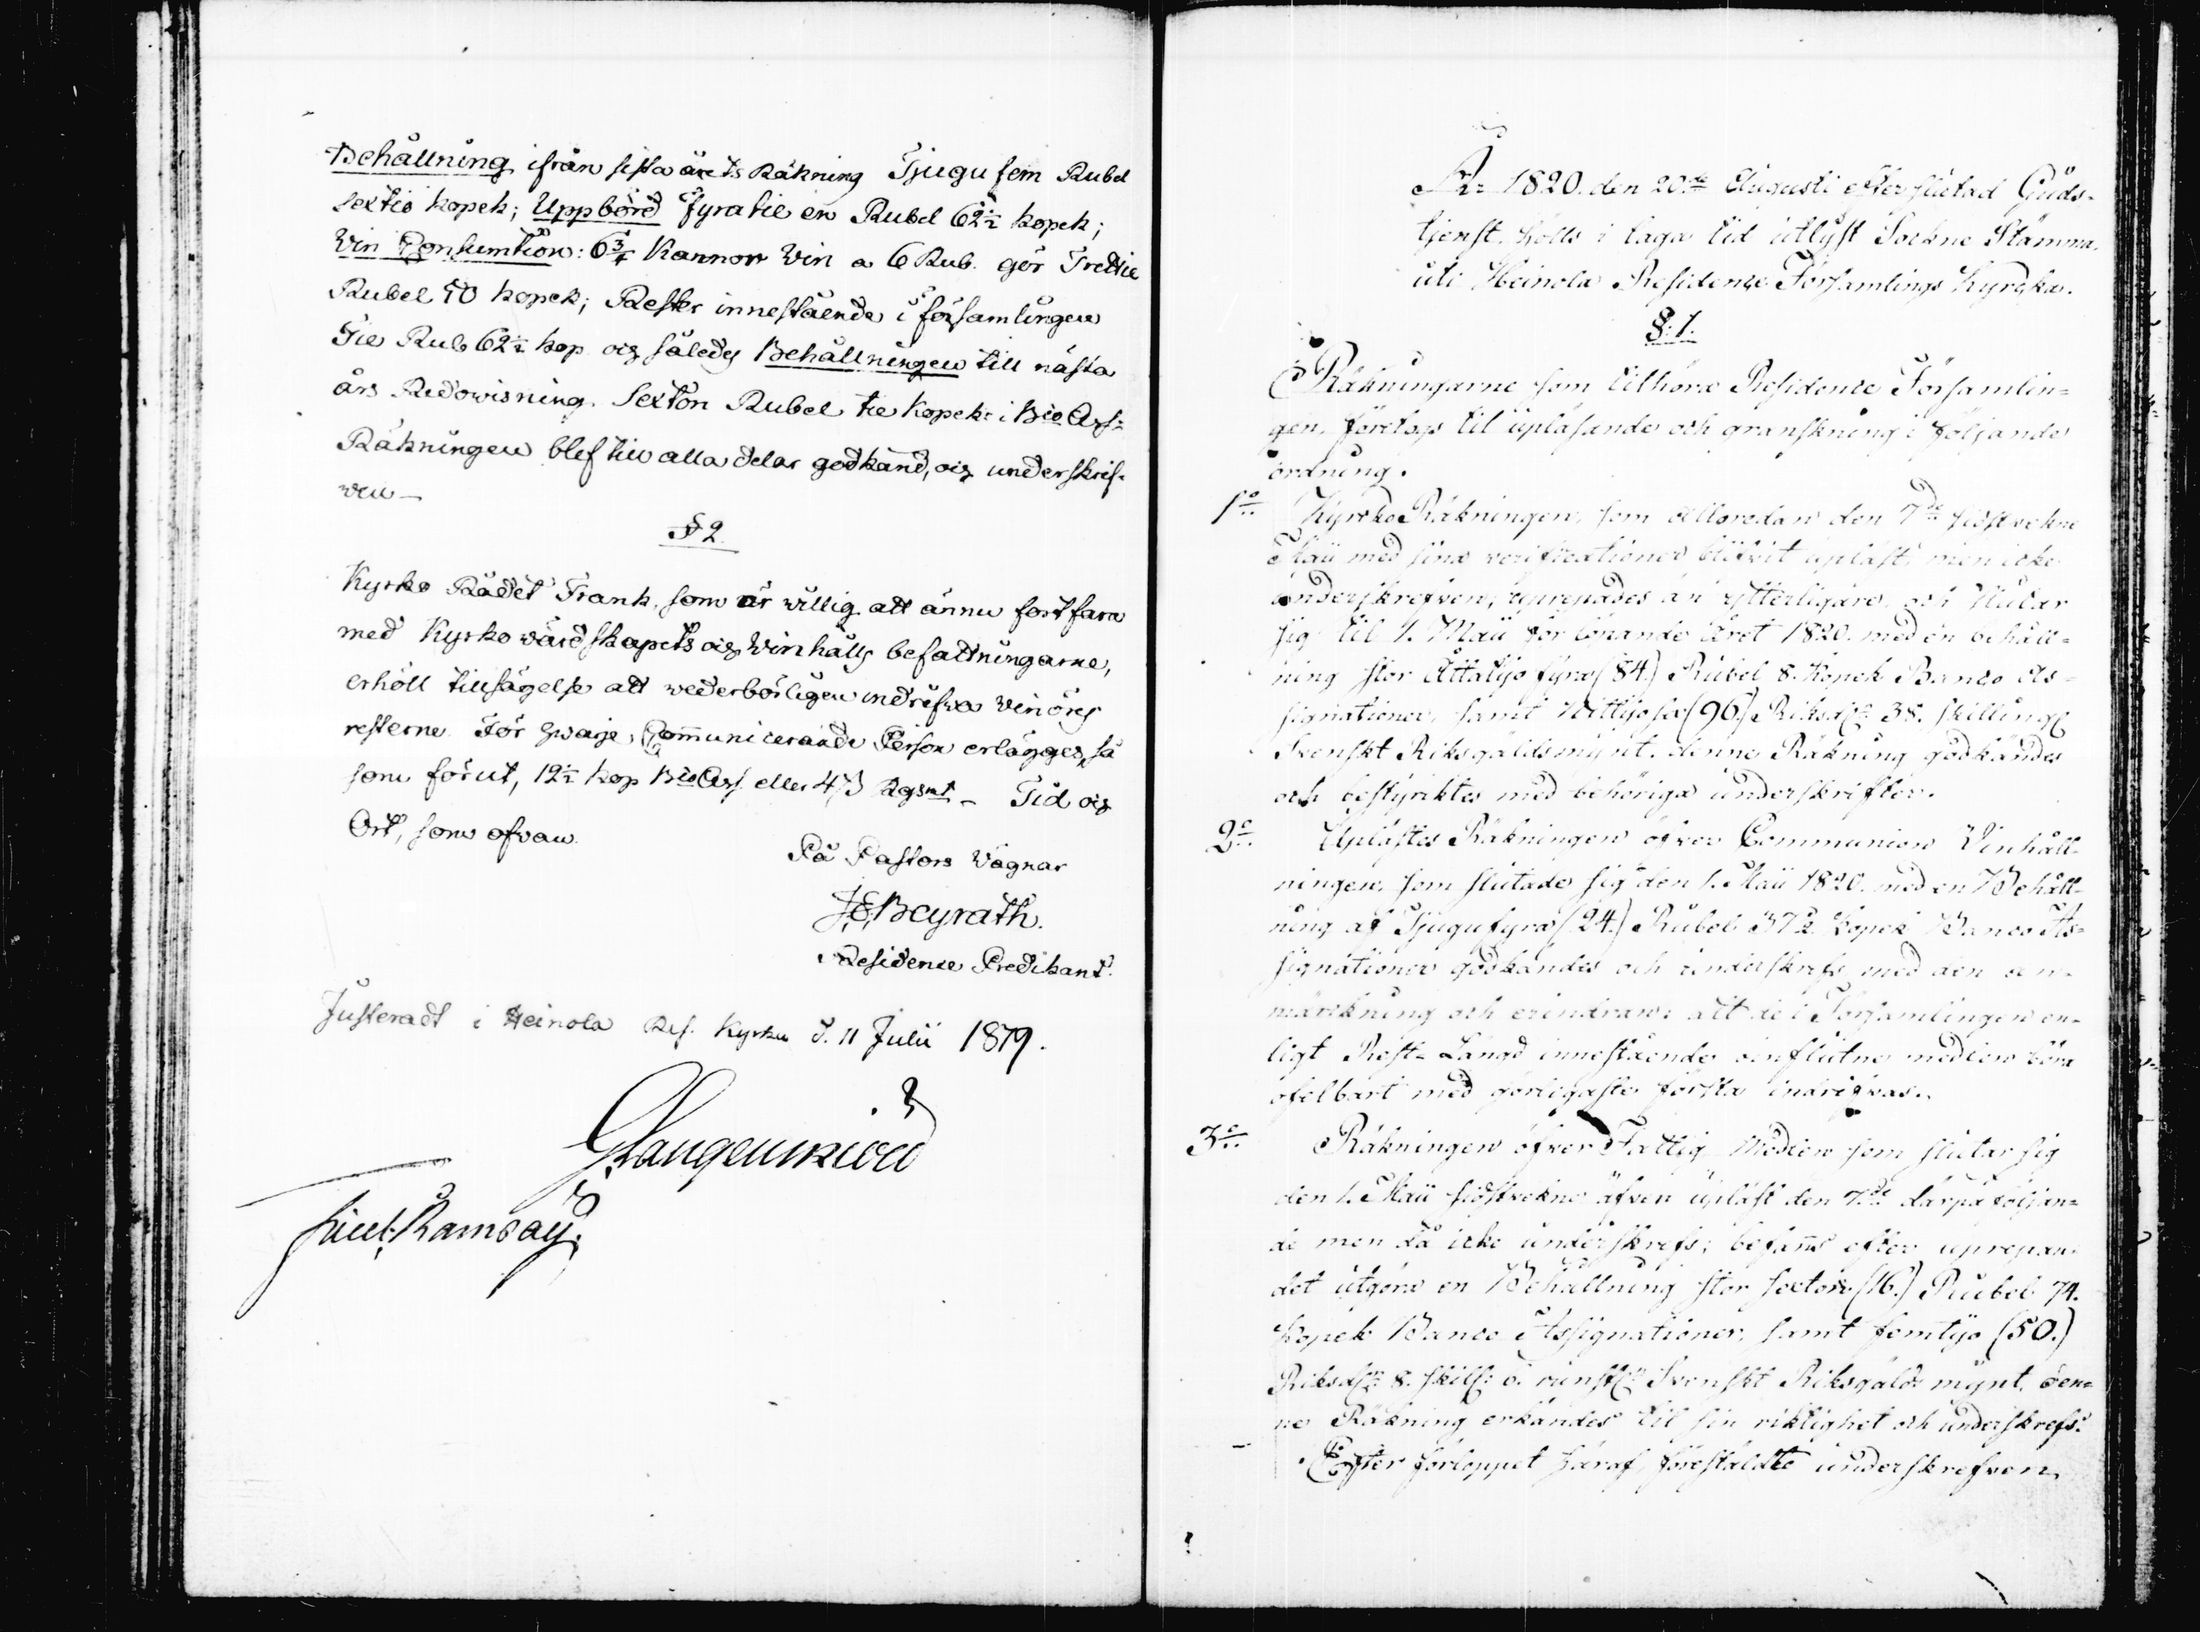 Behållning ifrån sista årets Räkning Tjugu fem Rubel
sextio kopek; Uppbörd fyratie en Rubel 62½ kopek;
Vin Consumtion: 6¾ Kannor Vin a 6 Rub. gör Trettie
Rubel 50 kopek; Rester innestående i församlingen
Tie Rub 62½ kop. och således Behållningen till nästa
års Redowisning. Sexton Rubel tie Kopek i Bco Ass:
Räkningen blef till alla delar godkänd, och underskrif-
ven —
§ 2.
Kyrko Rådet Frank, som är willig att ännu fortfara
med Kyrko wärdskapets och Vinhålls befattningarne,
erhöll tillsägelse att wederbörligen indrifwa vinöres
resterne. För hwarje Communicerande Person erlägges, så
som förut, 12½ kop Bco Ass. eller 4 ß Rgsmt – Tid och
Ort, som ofvan.
På Pastors vägnar
J.E. Beyrath.
Residence Predikant.
Justeradt i Heinola Res. Kyrka d. 11 Julii 1819.
G Langenskiöld
Ramsay.
År 1820. den 20de Augusti efter slutad Guds-
tjenst, hölls i laga tid utlyst Sockne Stämma,
uti Heinola Residence Församlings Kyrcka.
§. 1.
Räkningarne som tilhöra Residence Församlin-
gen, företogs til upläsande och granskning i följande
ordning.
1o Kyrko Räkningen, som allaredan den 7de sidstvekne
Maii med sina verificationer blifvit upläst, men icke
underskrefven, uprepades än ytterligare, och slutar
sig til 1. Maii för löpande Året 1820. med en behåll-
ning stor Åttatijo fyra (84.) Rubel 8. Kopek Banco As-
signationer, samt Nittijo sex (96.) Riksd:r 38. skilling
Svenskt Riksgäldsmynt. denna Räkning godkändes
och bestyrktes med behöriga underskrifter.
2o Uplästes Räkningen öfver Communion Vinhåll-
ningen, som slutade sig den 1. Maii 1820. med en Behåll-
ning af Tjugufyra (24.) Rubel 37½ Kopek Banco As-
signationer godkändes och underskrefs med den an-
märckning och erindran: att de i Församlingen en-
ligt Rest-Längd innestående oinflutne medlen böra
ofelbart med görligaste första indrifvas.
3o Räkningen öfver Fattig Medlen som slutar sig
den 1. Maii sidstvekne äfven upläst den 7de därpå följan-
de men då icke underskrefs; befanns efter uprepan-
det utgöra en Behållning stor sexton (16.) Rubel 74.
Kopek Banco Assignationer, samt femtijo (50.)
Riksd:r 8. skill: 6. runst:r Svenskt Riksgälds mynt. den-
na Räkning erkändes til sin riktighet och underskrefs.
Efter förloppet häraf, föreställdte underskrefven,